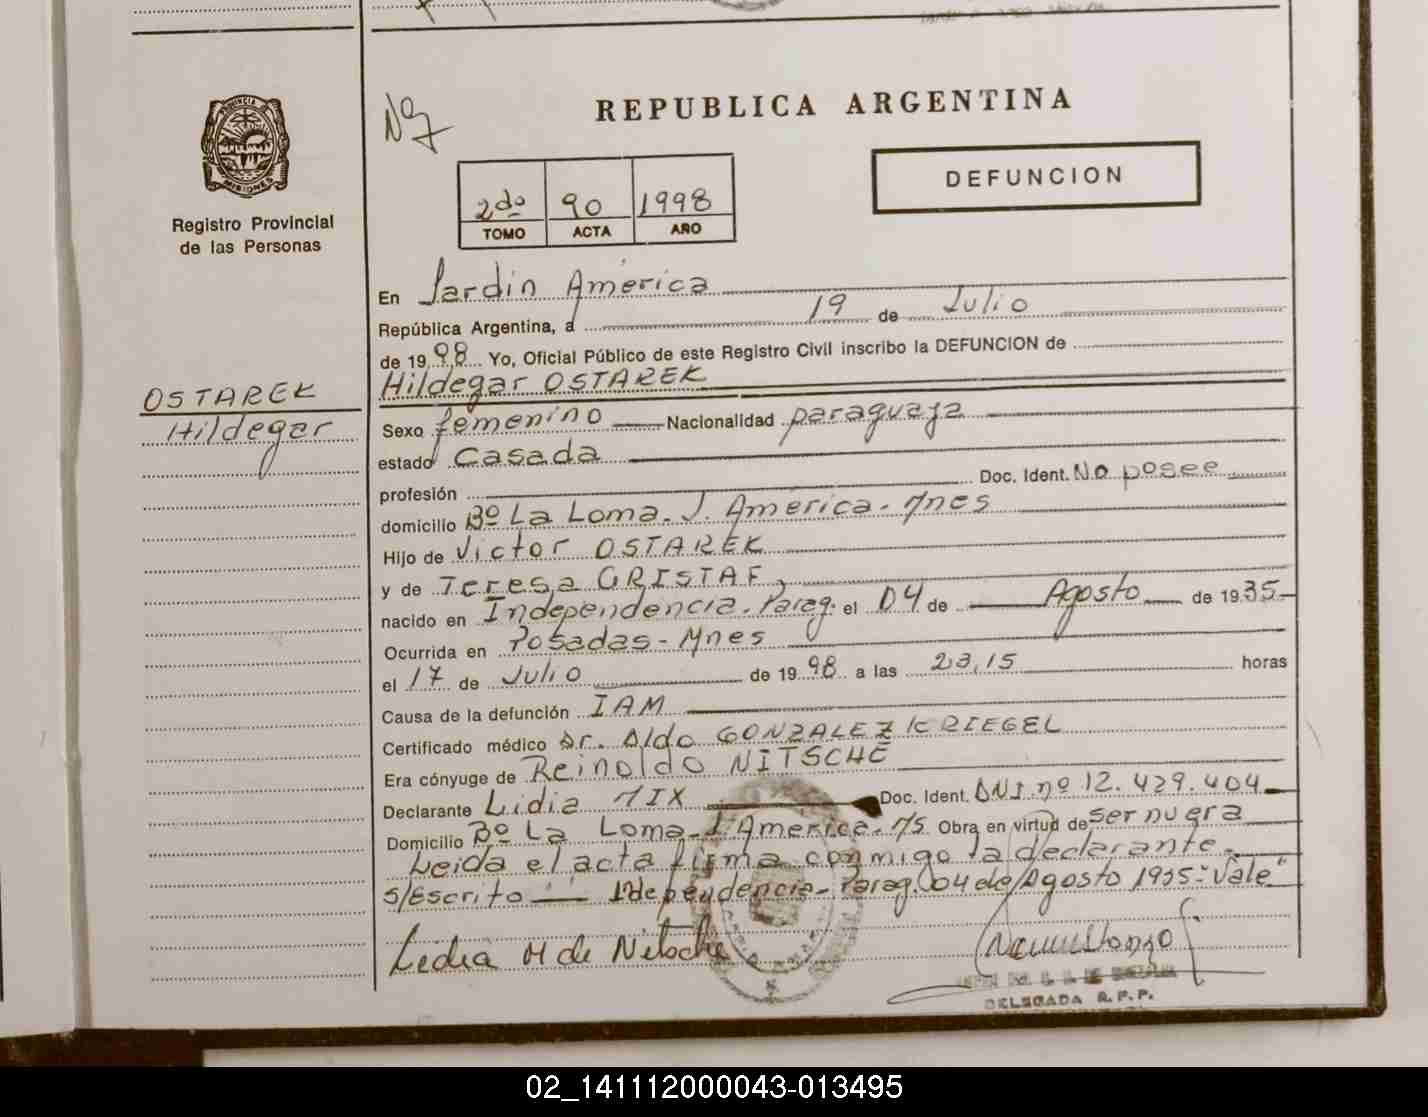 REPUBLICA ARGENTINA
DEFUNCION
2do 90 1998
TOMO ACTA AÑO
PROVINCIA DE
MISIONES
Registro Provincial
de las Personas
OSTAREK
Hildegar
En Jardin América
República Argentina, a 19 de Julio
de 1998 Yo, Oficial Público de este Registro Civil inscribo la DEFUNCION de
Hildegar OSTAREK
Sexo femenino Nacionalidad paraguaya
estado Casada
profesión Doc. Ident. No posee
domicilio Bº La Loma. J. América. Mnes
Hijo de Victor OSTAREK
y de Teresa GRISTAF
nacido en Independencia. Parag. el 04 de Agosto de 1935
Ocurrida en Posadas - Mnes
el 17 de Julio de 1998 a las 23,15 horas
Causa de la defunción IAM
Certificado médico Dr. Aldo GONZALEZ KRIEGEL
Era cónyuge de Reinoldo NITSCHE
Declarante Lidia MIX Doc. Ident. DNI nº 12.429.404
Domicilio Bº La Loma. J. America. Ms Obra en virtud de ser nuera
Leida el acta firma conmigo la declarante.
S/Escrito Independencia - Parag. 04 de Agosto 1935 "Vale"
Lidia M de Nitsche
DELEGADA R. P. P.
02_141112000043-013495